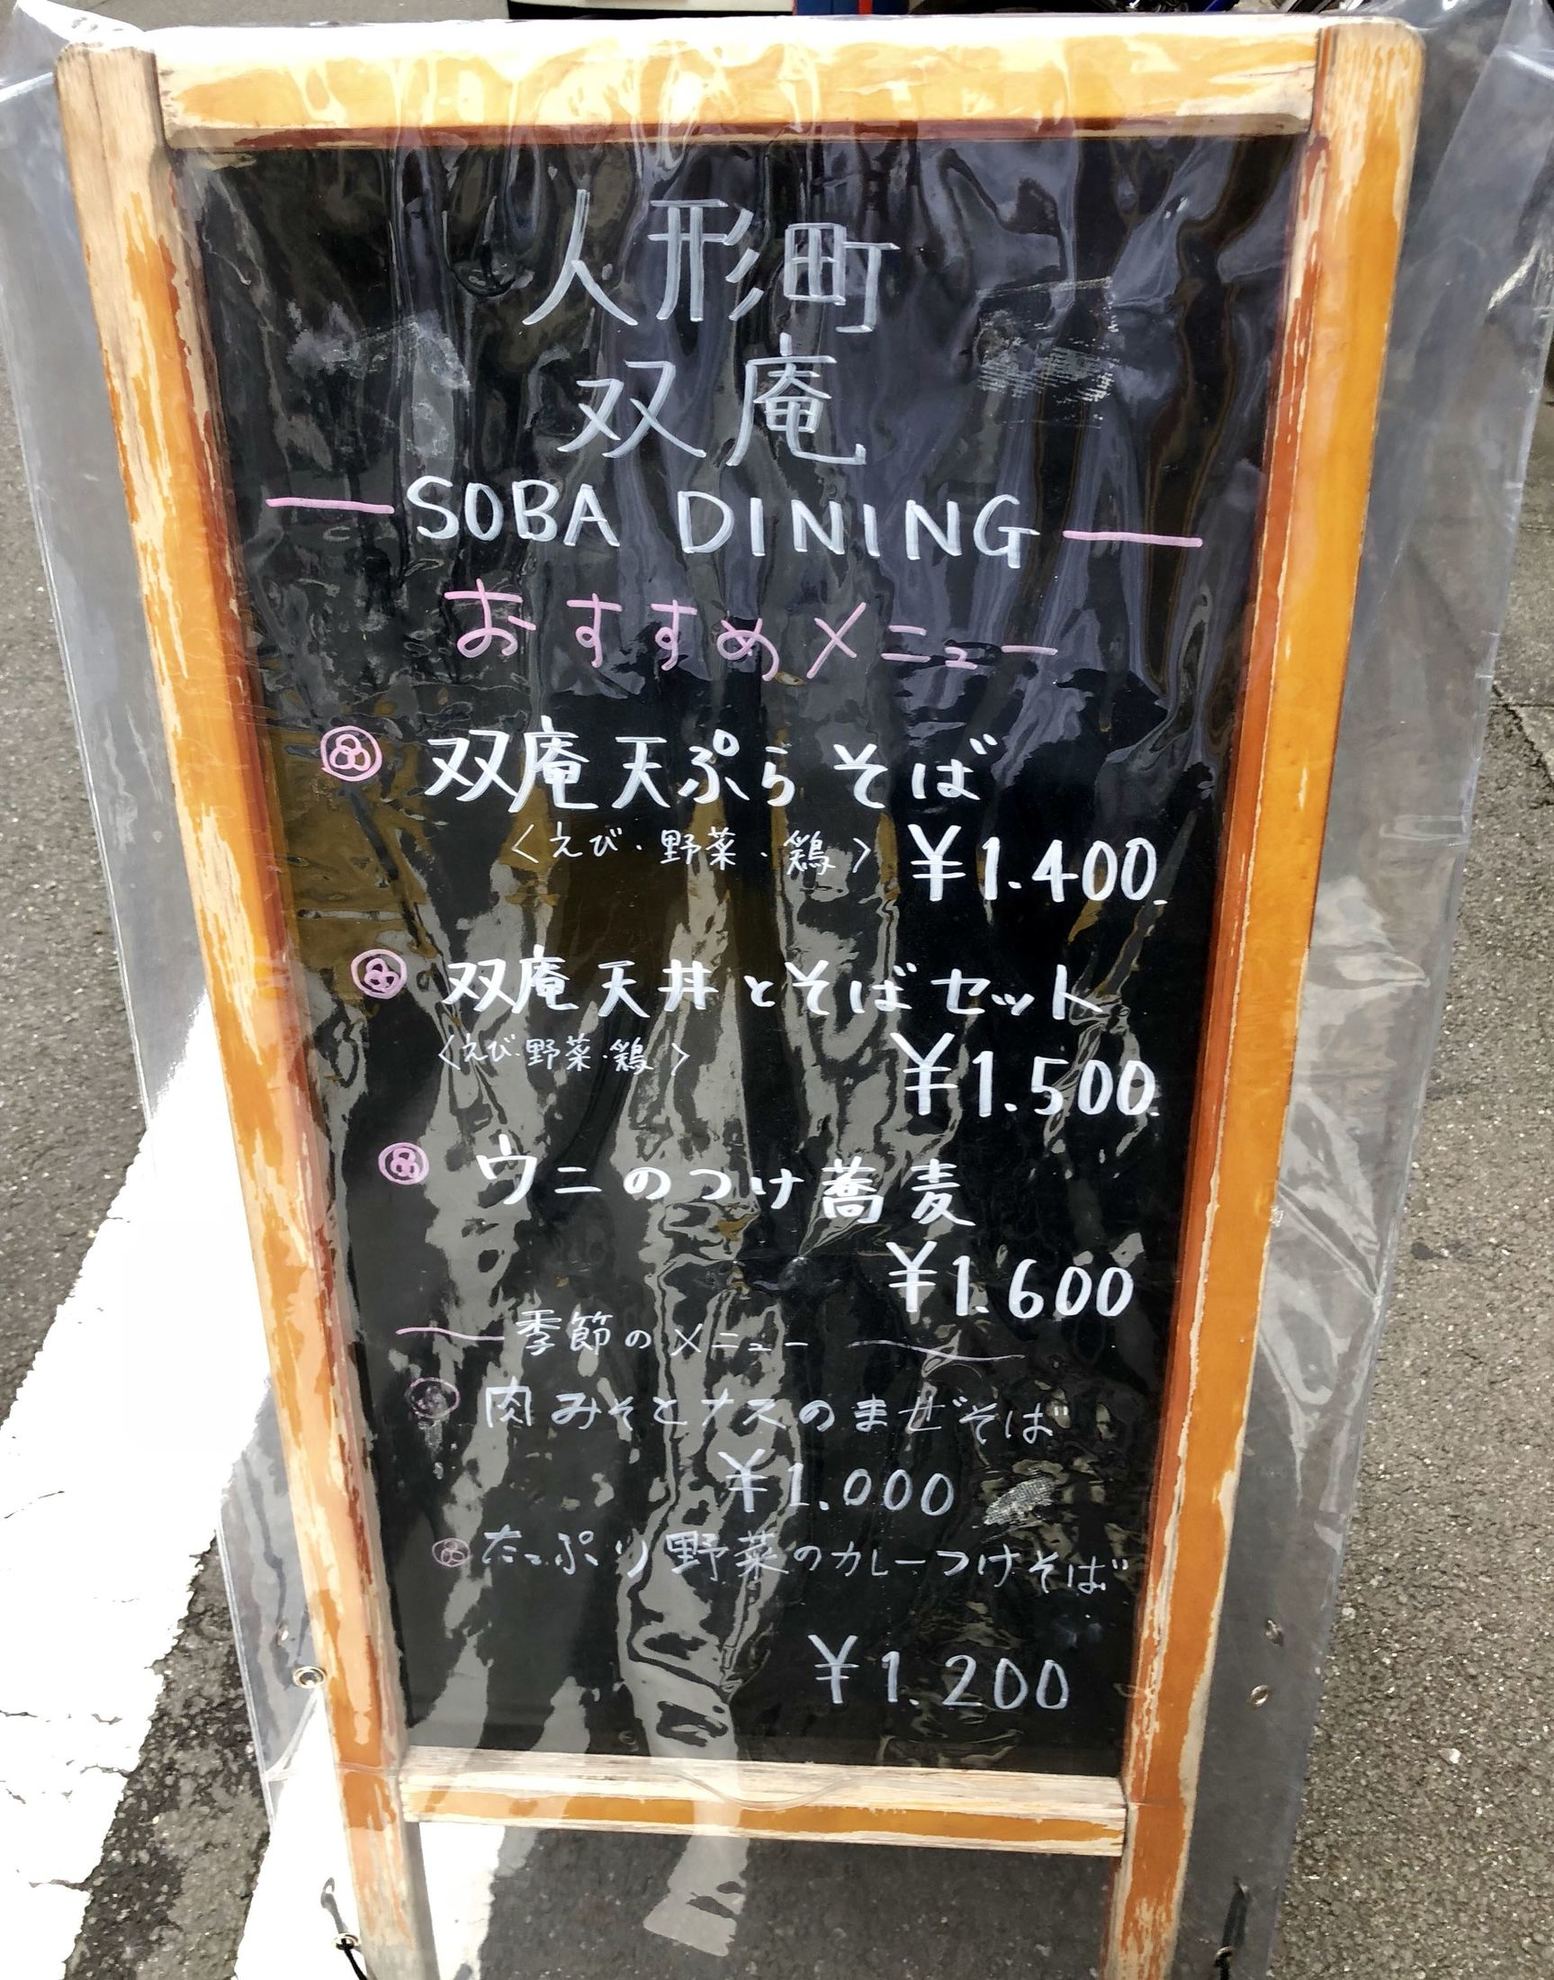 人形町
双庵
SOBA DINING
おすすめメニュー
双庵天ぷらそば
〈えび・野菜・鶏〉 ¥1.400.
双庵天丼とそばセット
〈えび・野菜・鶏〉
¥1.500.
ウニのつけ蕎麦
¥1.600
季節のメニュー
肉みそとナスのまぜそば
¥1.000
たっぷり野菜のカレーつけそば
¥1.200